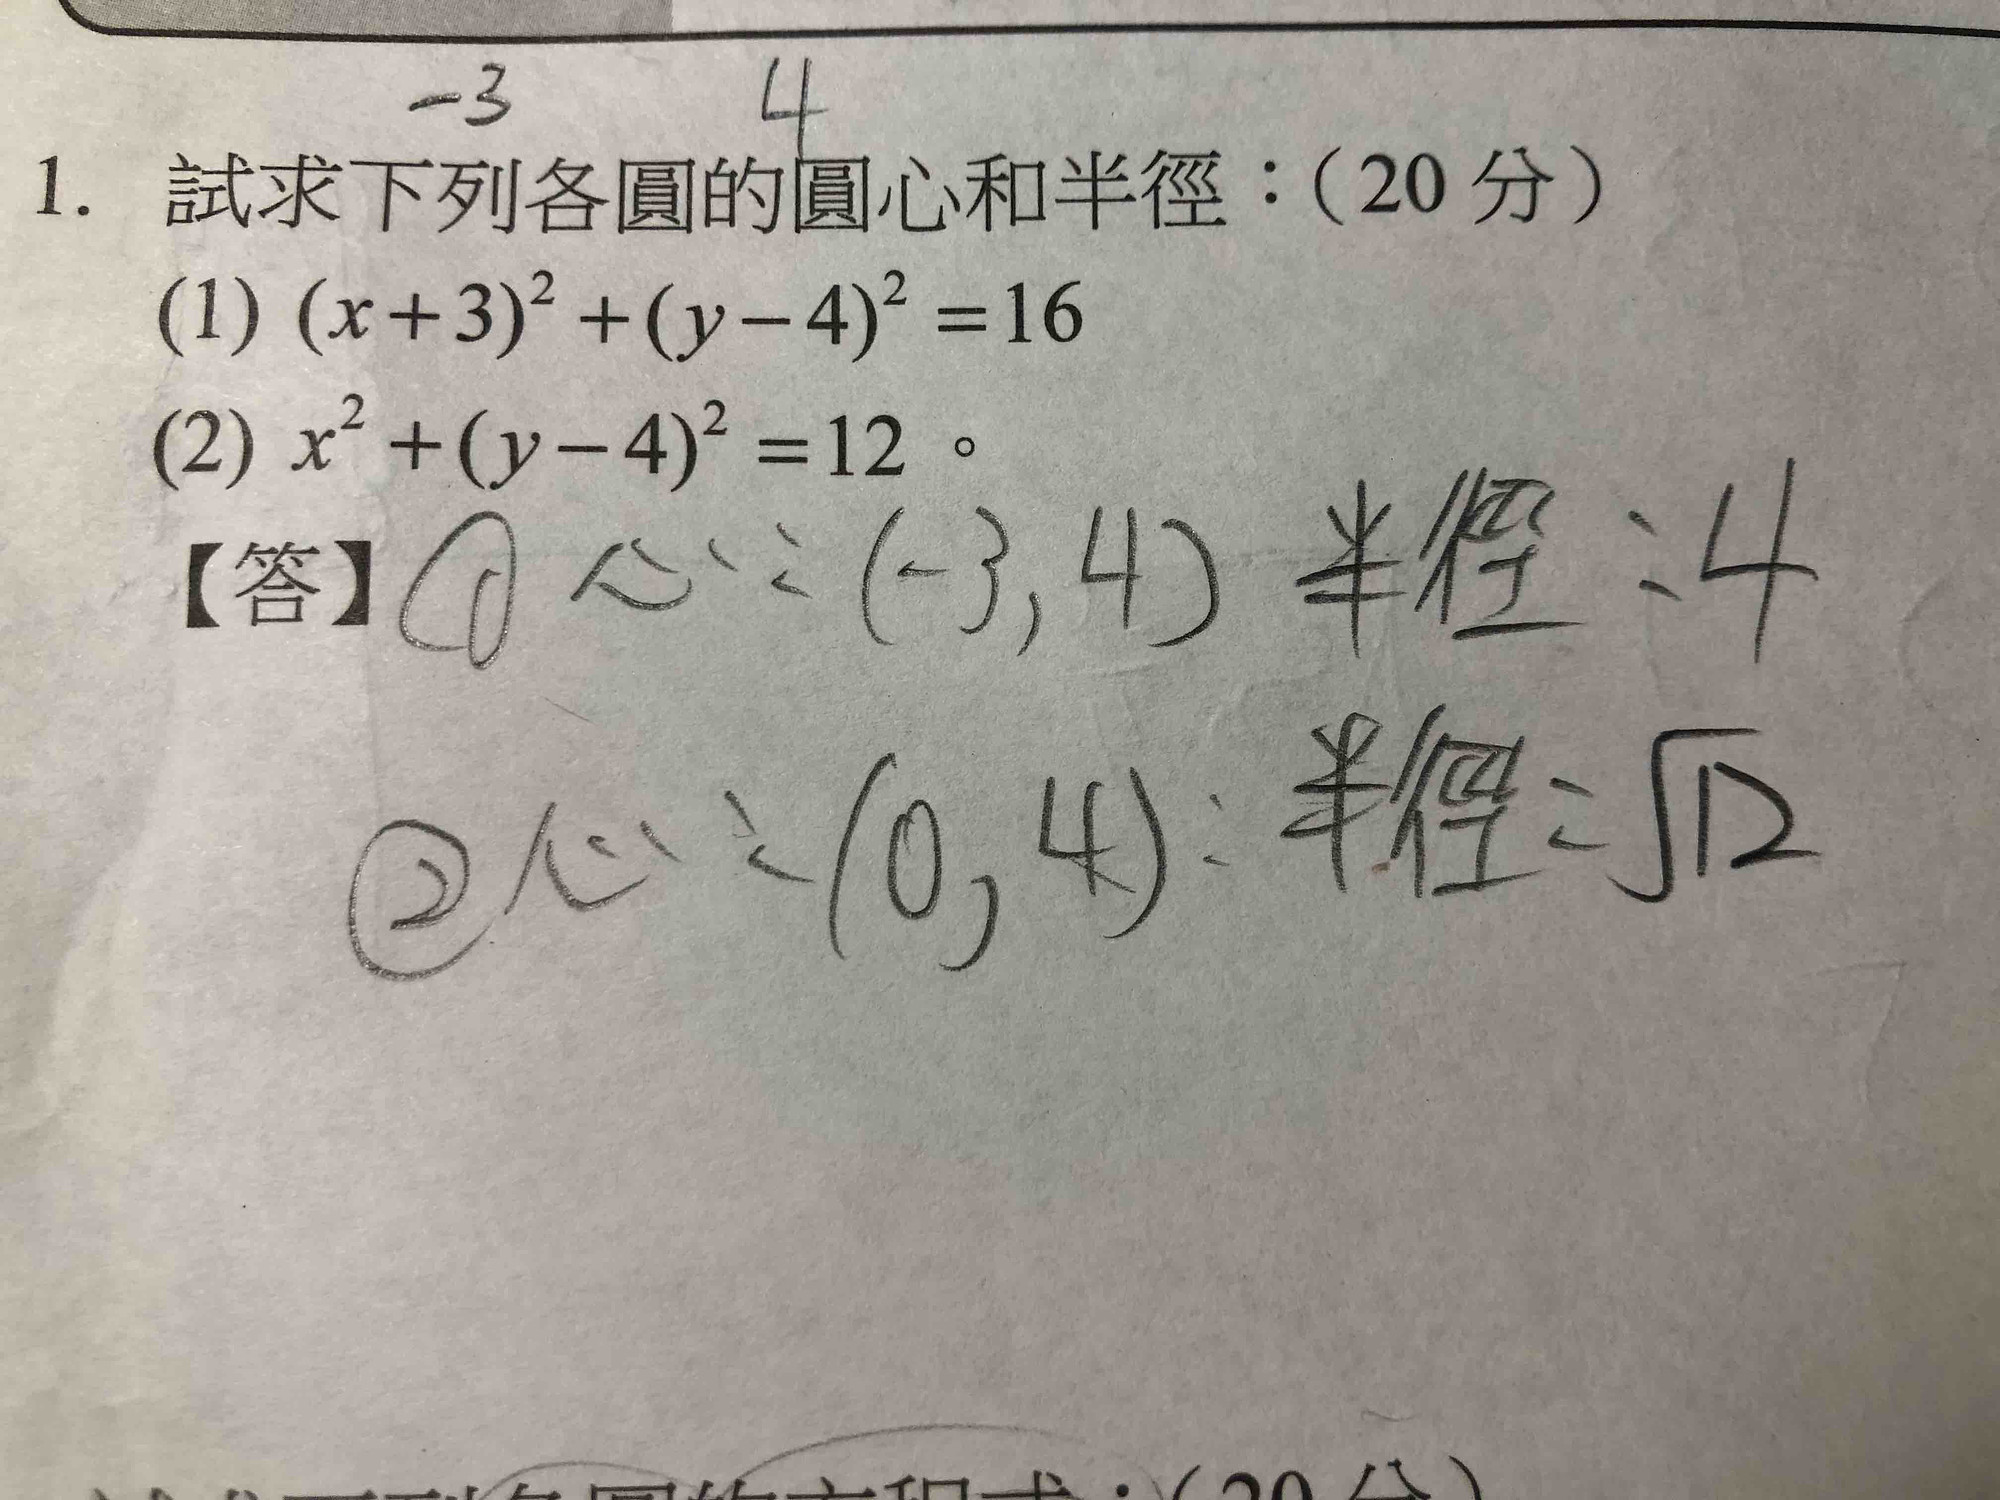 -3 4
1. 試求下列各圓的圓心和半徑：（20 分）
(1) (x+3)² + (y−4)² = 16
(2) x² + (y−4)² = 12。
【答】① 心：(-3, 4) 半徑：4
② 心：(0, 4)：半徑：√12
試求下列各圓的方程式：（20 分）